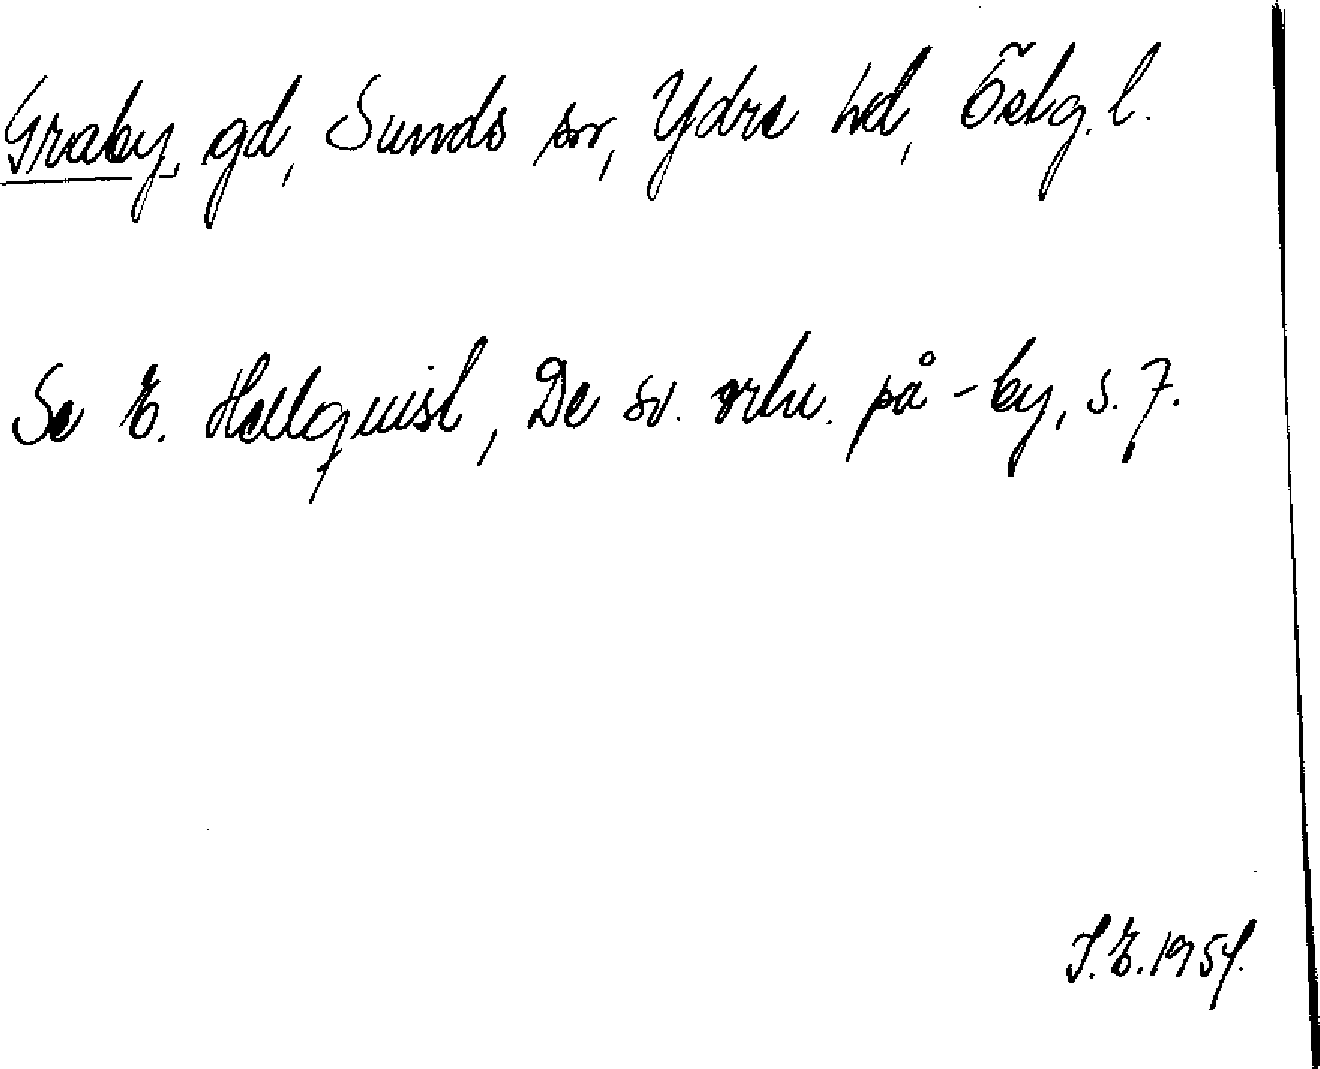 Graby, gd, Sunds sn, Ydre hd, Östg. l.
Se E. Hellquist, De sv. ortn. på -by, s. 7.
S.E. 1954.